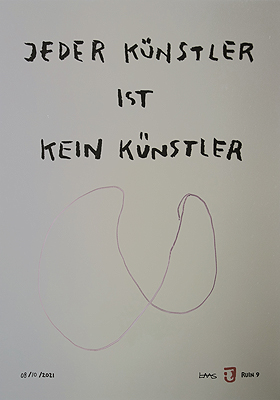 JEDER KÜNSTLER
IST
KEIN KÜNSTLER
08/10/2021
RUIN 9